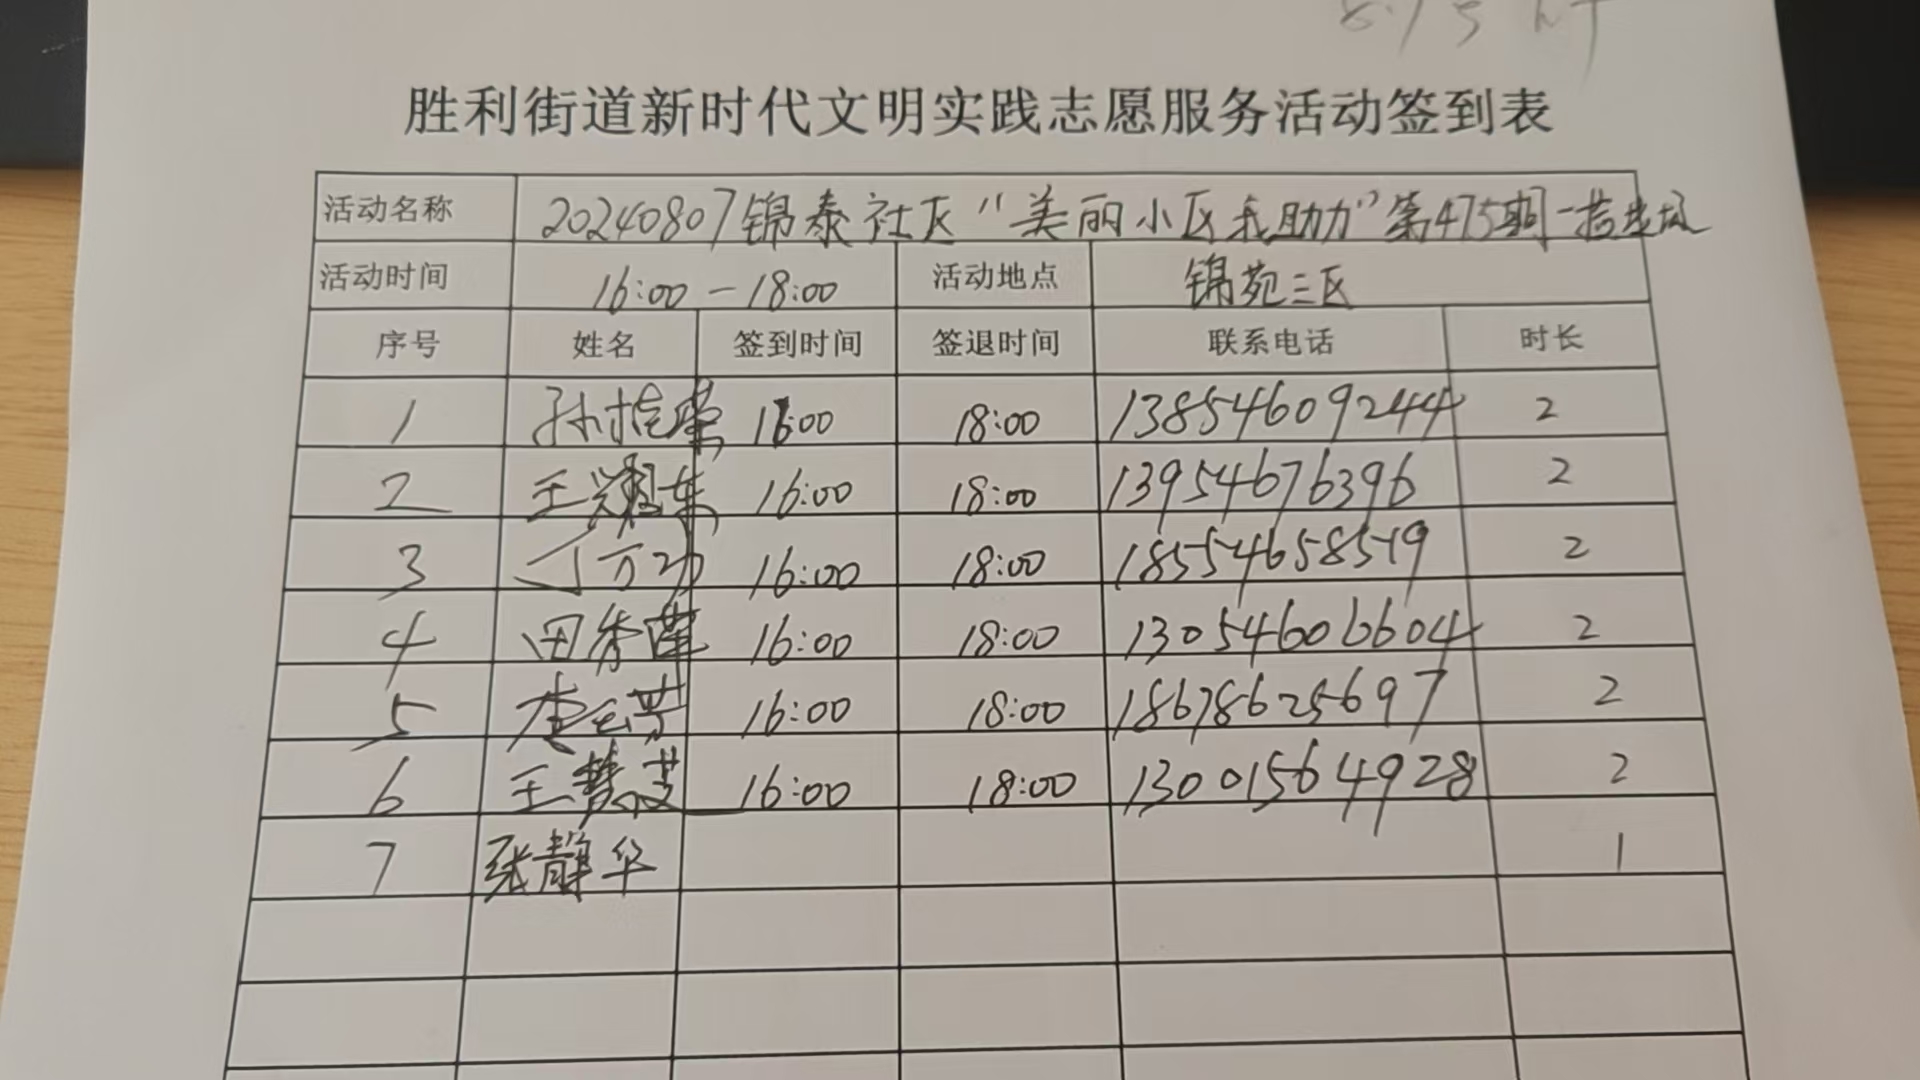 胜利街道新时代文明实践志愿服务活动签到表
活动名称 20240807锦泰社区“美丽小区我助力”第475期一捡垃圾
活动时间 16:00-18:00 活动地点 锦苑三区
序号 姓名 签到时间 签退时间 联系电话 时长
1 孙桂荣 16:00 18:00 13854609244 2
2 王 东 16:00 18:00 13954676396 2
3 丁万功 16:00 18:00 18554658519 2
4 田秀莲 16:00 18:00 13054606604 2
5 李云芳 16:00 18:00 18678625697 2
6 王慧芝 16:00 18:00 13001564928 2
7 张静华 1